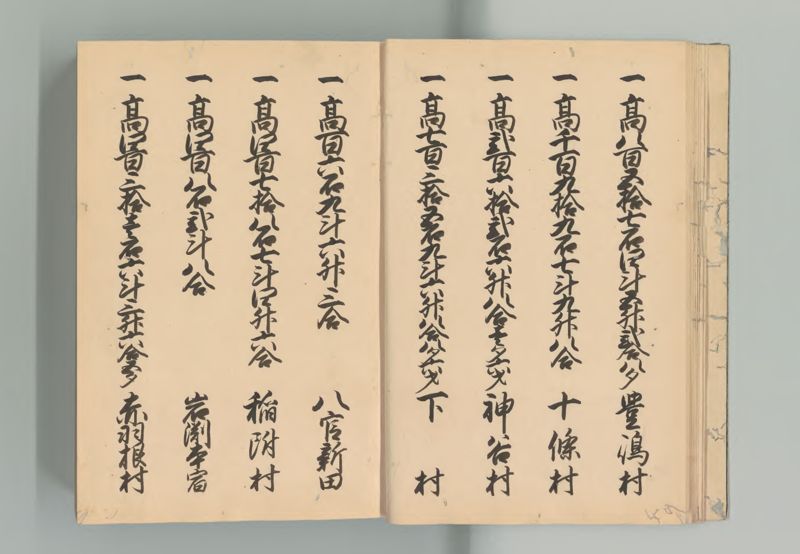 一高八百五拾七石四斗五升弐合八夕 豊嶋村
一高千百九拾九石七斗九升八合 十條村
一高弐百六拾弐石六升八合 神谷村
一高七百三拾五石九斗六升八合 下 村
一高百六石九斗六升三合 八官新田
一高四百七拾八石七斗四升六合 稲附村
一高四百八石弐斗八合 岩渕本宿
一高四百三拾壱石六斗三升六合 赤羽根村